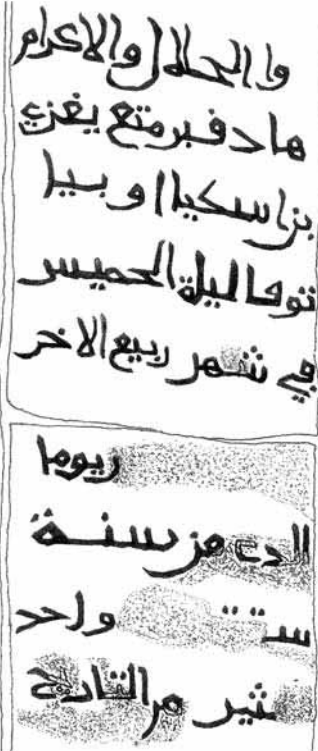 وا الجلال والاكرام
هاد فبر متع
بن اسكيا او بيا
توفا ليلة الخميس
في شهر ربيع الاخر
يوما
من سنة
واحد
من التاريخ